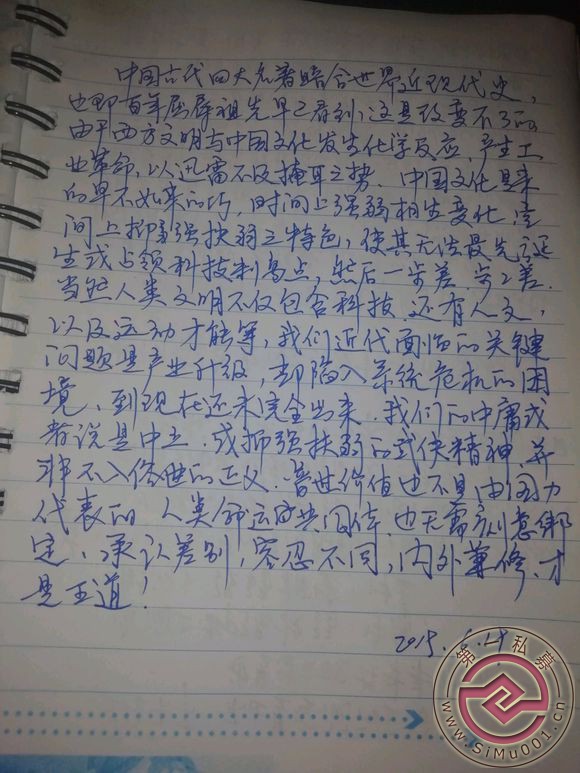 中国古代四大名著暗合世界近现代史,
也即百年屈辱祖先早已看到,这是改变不了的
由于西方文明与中国文化发生化学反应,产生工
业革命,以迅雷不及掩耳之势.中国文化是来
的早不如来的巧,时间上强弱相生变化,空
间上抑强扶弱之特色,使其无法最先诞
生或占领科技制高点,然后一步差.步步差.
当然人类文明不仅包含科技.还有人文,
以及运动才能等,我们近代面临的关键
问题是产业升级,却陷入系统危机的困
境,到现在还未完全出来.我们的中庸或
者说是中立.或抑强扶弱的武侠精神,并
非不入俗世的正义.普世价值也不是由国力
代表的 人类命运共同体,也无需刻意绑
定,承认差别,容忍不同,内外兼修,才
是王道!
2019.
第一私募
www.SiMu001.cn